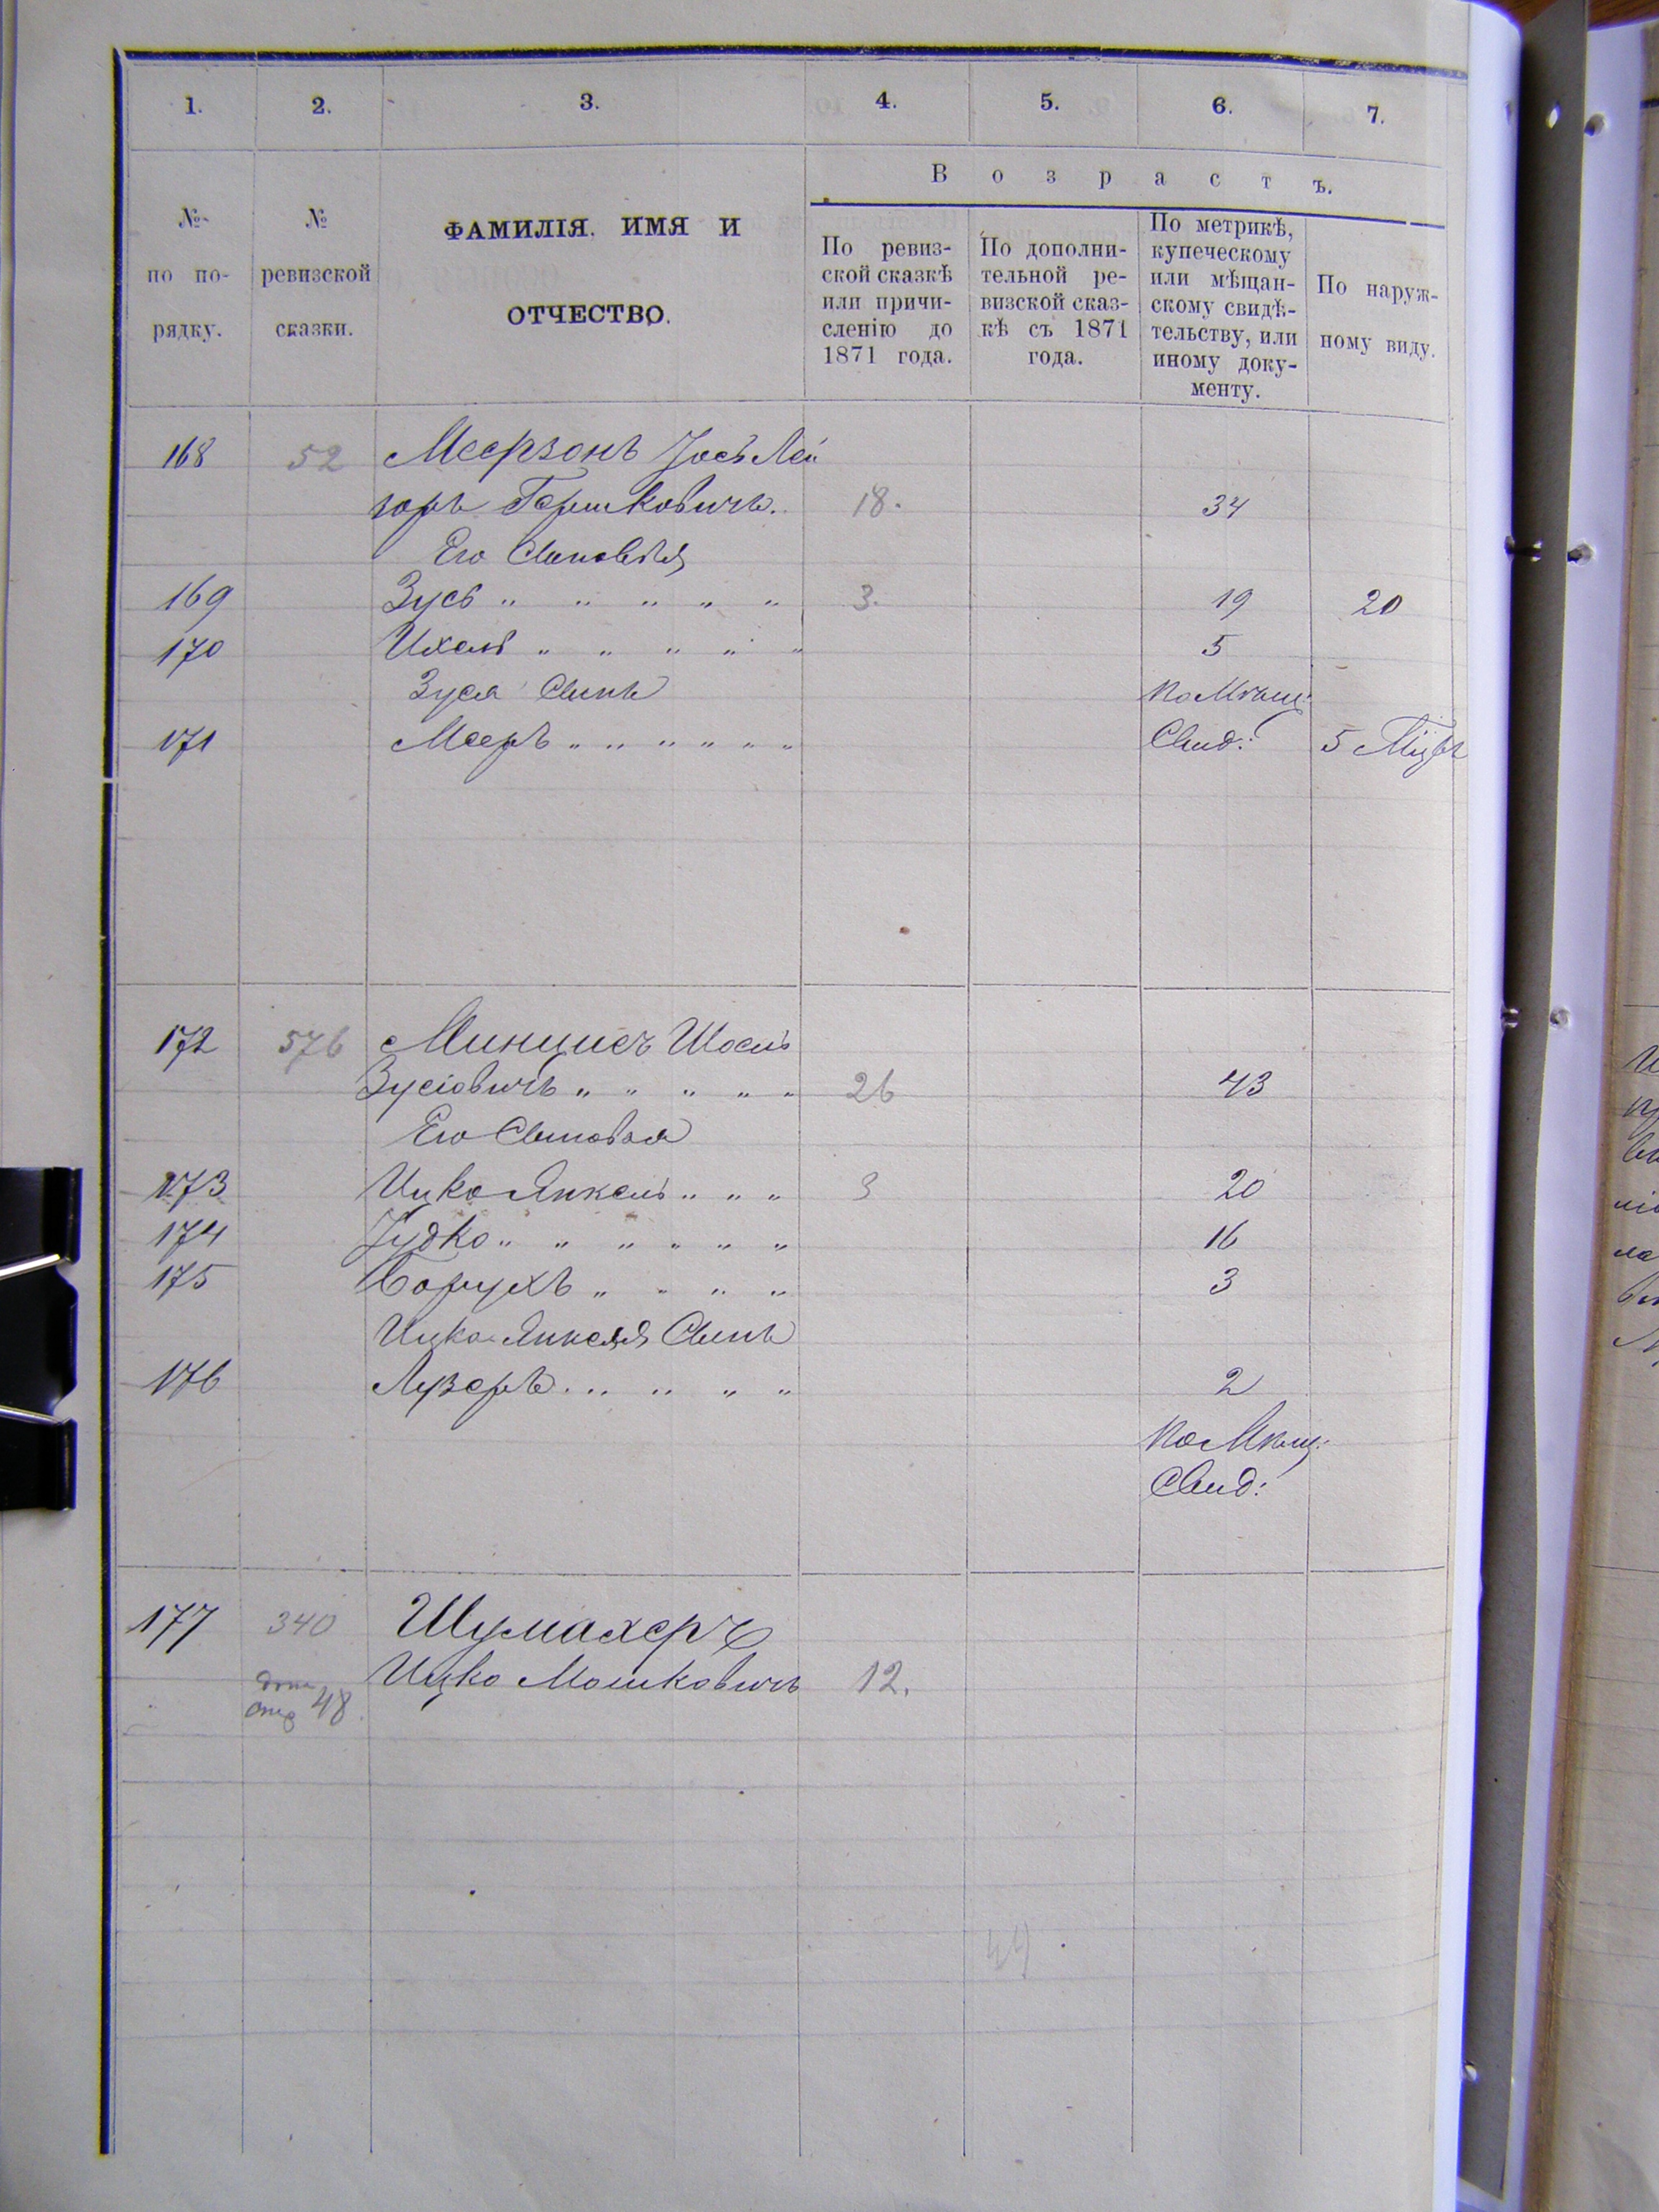 1. 2. 3. 4. 5. 6. 7.
Возрастъ.
№ по по-рядку.
№ ревизской сказки.
ФАМИЛІЯ. ИМЯ И
ОТЧЕСТВО.
По ревиз-
ской сказкѣ
или причи-
сленію до
1871 года.
По дополни-
тельной ре-
визской сказ-
кѣ съ 1871
года.
По метрикѣ,
купеческому
или мѣщан-
скому свидѣ-
тельству, или
иному доку-
менту.
По наруж-
ному виду.
168 52 Меерзонъ Іось Лей
зоръ Гершковичъ. 18. 34
Его Сыновья
169 Зусь " " " " " 3. 19 20
170 Ихель " " " " " 5
Зуся Сынъ по Мѣщ:
171 Мееръ " " " " " " Свид: 5 Мцѣ
172 576 Шоель
Зусіовичъ " " " " " 26 43
Его Сыновья
173 Ицко Янкель " " " 3 20
174 Іудко " " " " " " 16
175 Борухъ " " " " 3
Ицко Янкеля Сынъ
176 Лузеръ " " " " " 2
по Мѣщ:
Свид:
177 340 Шумахеръ
Ицко Мошковичъ 12.
48.
44